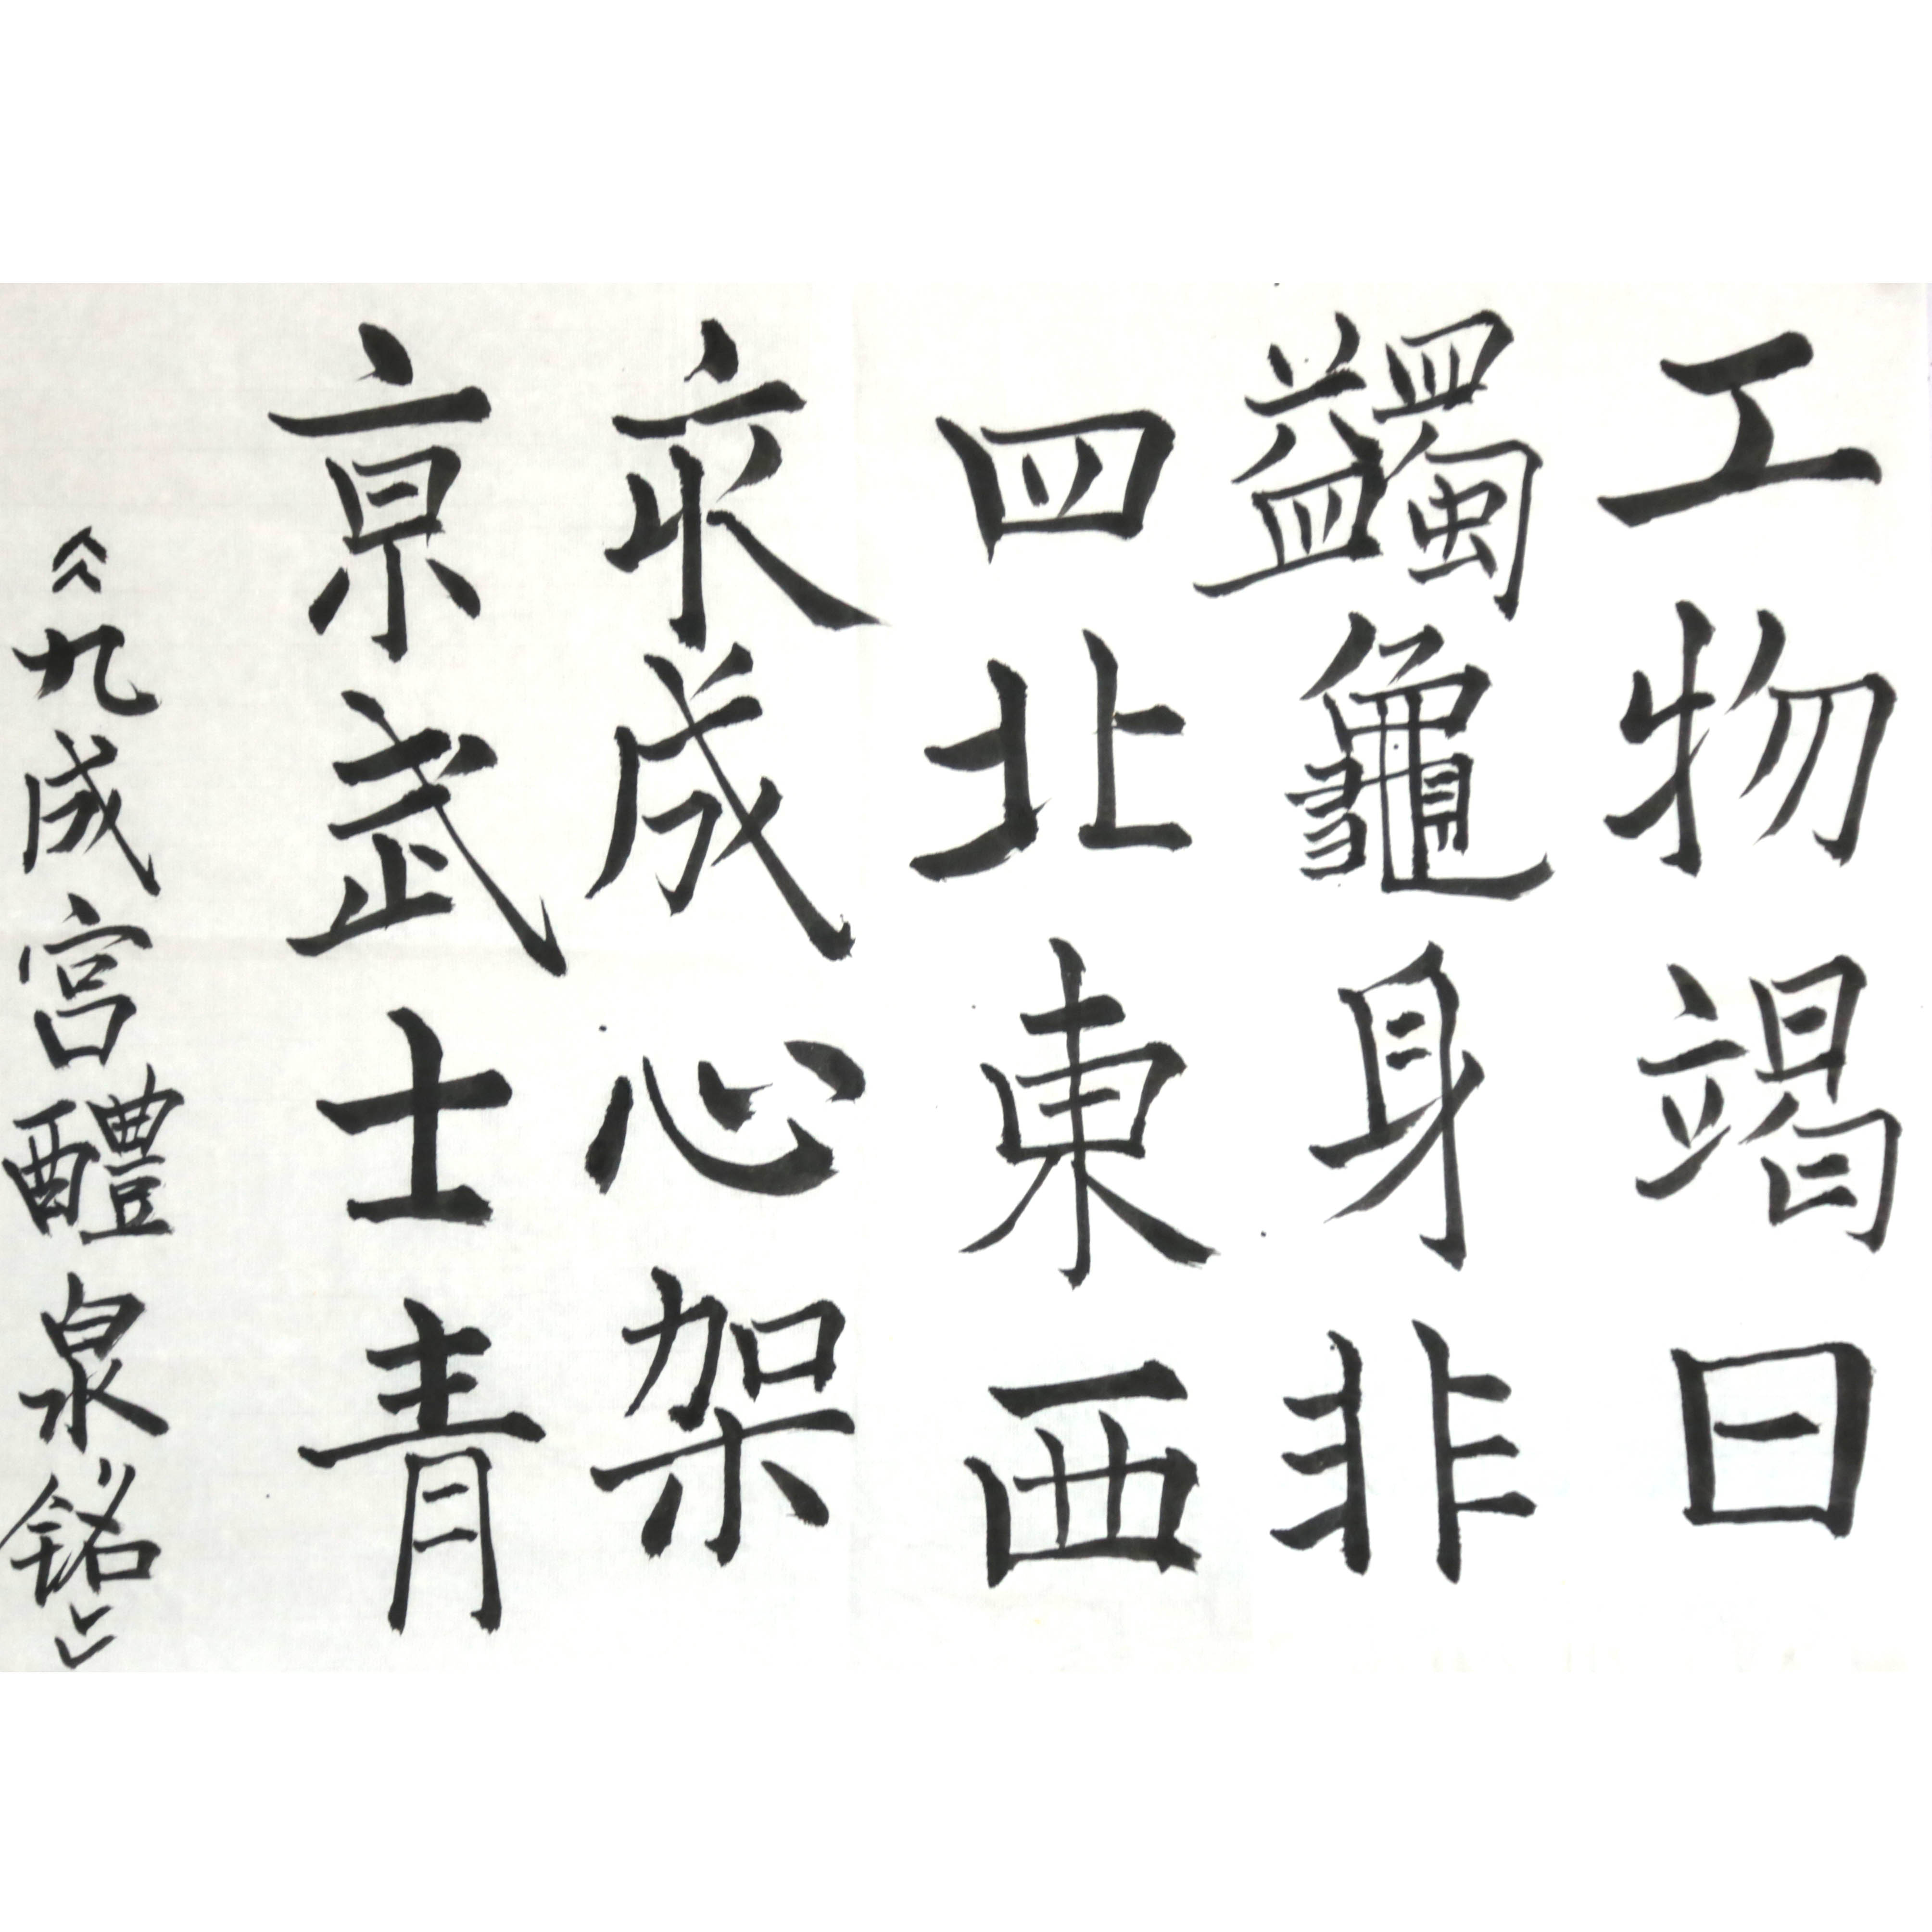 工物竭日
蠲龜身非
四北東西
永成心架
亰武士青
《九成宫醴泉铭》